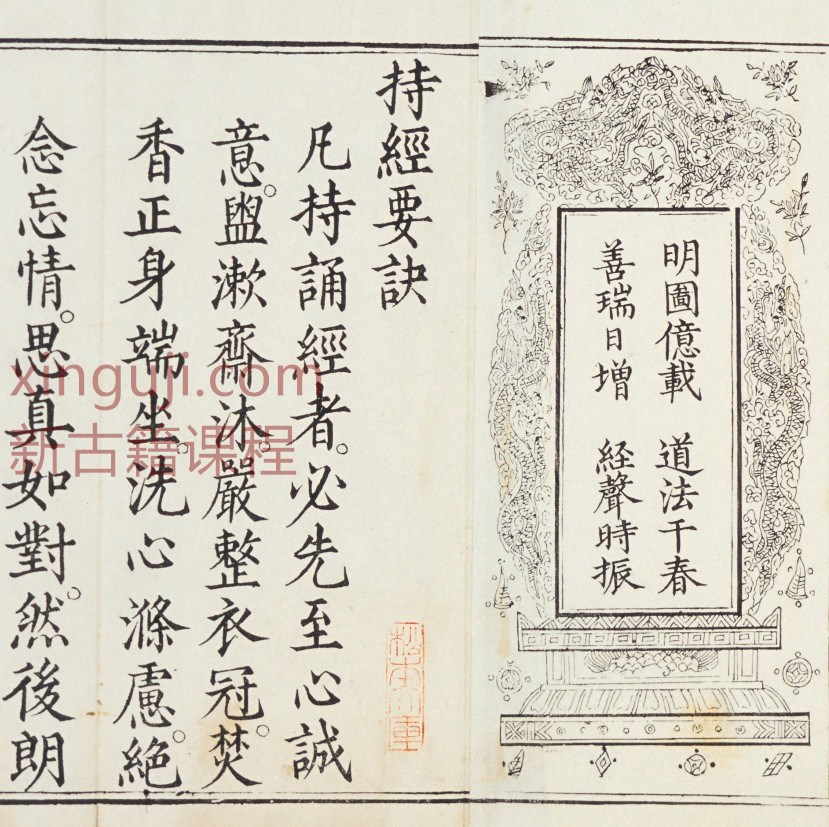 明圖億載　道法千春
善瑞日增　経聲時振
持經要訣
凡持誦經者。必先至心誠
意。盥漱齋沐。嚴整衣冠。焚
香正身端坐。洗心滌慮。絕
念忘情。思真如對。然後朗
xinguji.com
新古籍课程